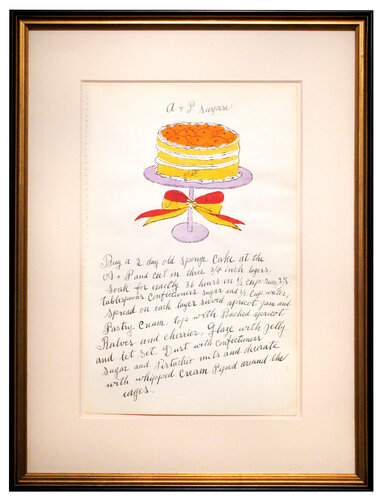 A + P Surprise
Buy a 2 day old sponge cake at the
A + P and cut in three 3/4 inch layers.
Soak for exactly 36 hours in 1/2 cup rum, 2 1/2
tablespoons Confectioners sugar and 1/2 Cup water,
Spread on each layer sieved apricot jam and
Pastry Cream. top with Poached apricot
Halves and cherries, Glaze with jelly
and let set. Dust with Confectioners
Sugar and Pistachio nuts and decorate
with whipped Cream Piped around the
edges.